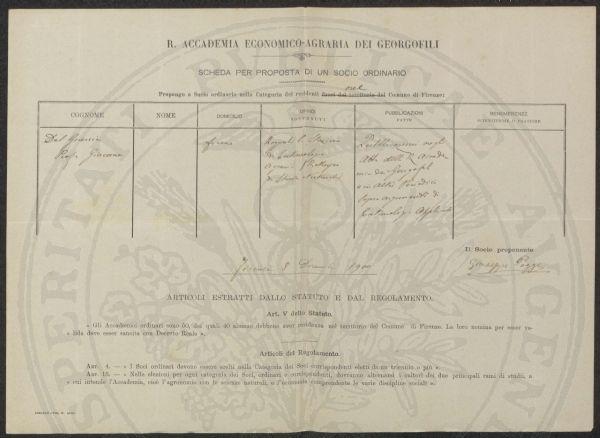 R. ACCADEMIA ECONOMICO-AGRARIA DEI GEORGOFILI
SCHEDA PER PROPOSTA DI UN SOCIO ORDINARIO
nel
Propongo a Socio ordinario nella Categoria dei residenti fuori del territorio del Comune di Firenze:
COGNOME NOME DOMICILIO UFFICI SOSTENUTI PUBBLICAZIONI FATTE BENEMERENZE SCIENTIFICHE O PRATICHE
Del Guercio
Prof. Giacomo
Firenze
di Entomologia
Agraria
Pubblicazioni negli
Atti della R. Accade
mia dei Georgofili
e in altri Periodici
sopra argomenti di
Entomologia Applicata
Il Socio proponente
Giuseppe
Firenze 8 1900
ARTICOLI ESTRATTI DALLO STATUTO E DAL REGOLAMENTO.
Art. V dello Statuto.
« Gli Accademici ordinari sono 50, dei quali 40 almeno debbono aver residenza nel territorio del Comune di Firenze. La loro nomina per esser va-
« lida deve esser sancita con Decreto Reale ».
Articoli del Regolamento.
ART. 4. — « I Soci ordinari devono essere scelti nella Categoria dei Soci corrispondenti eletti da un triennio o più ».
ART. 15. — « Nelle elezioni per ogni categoria dei Soci, ordinari e corrispondenti, dovranno alternarsi i cultori dei due principali rami di studi, a
« cui intende l'Accademia, cioè l'agronomia con le scienze naturali, e l'economia comprendente le varie discipline sociali ».